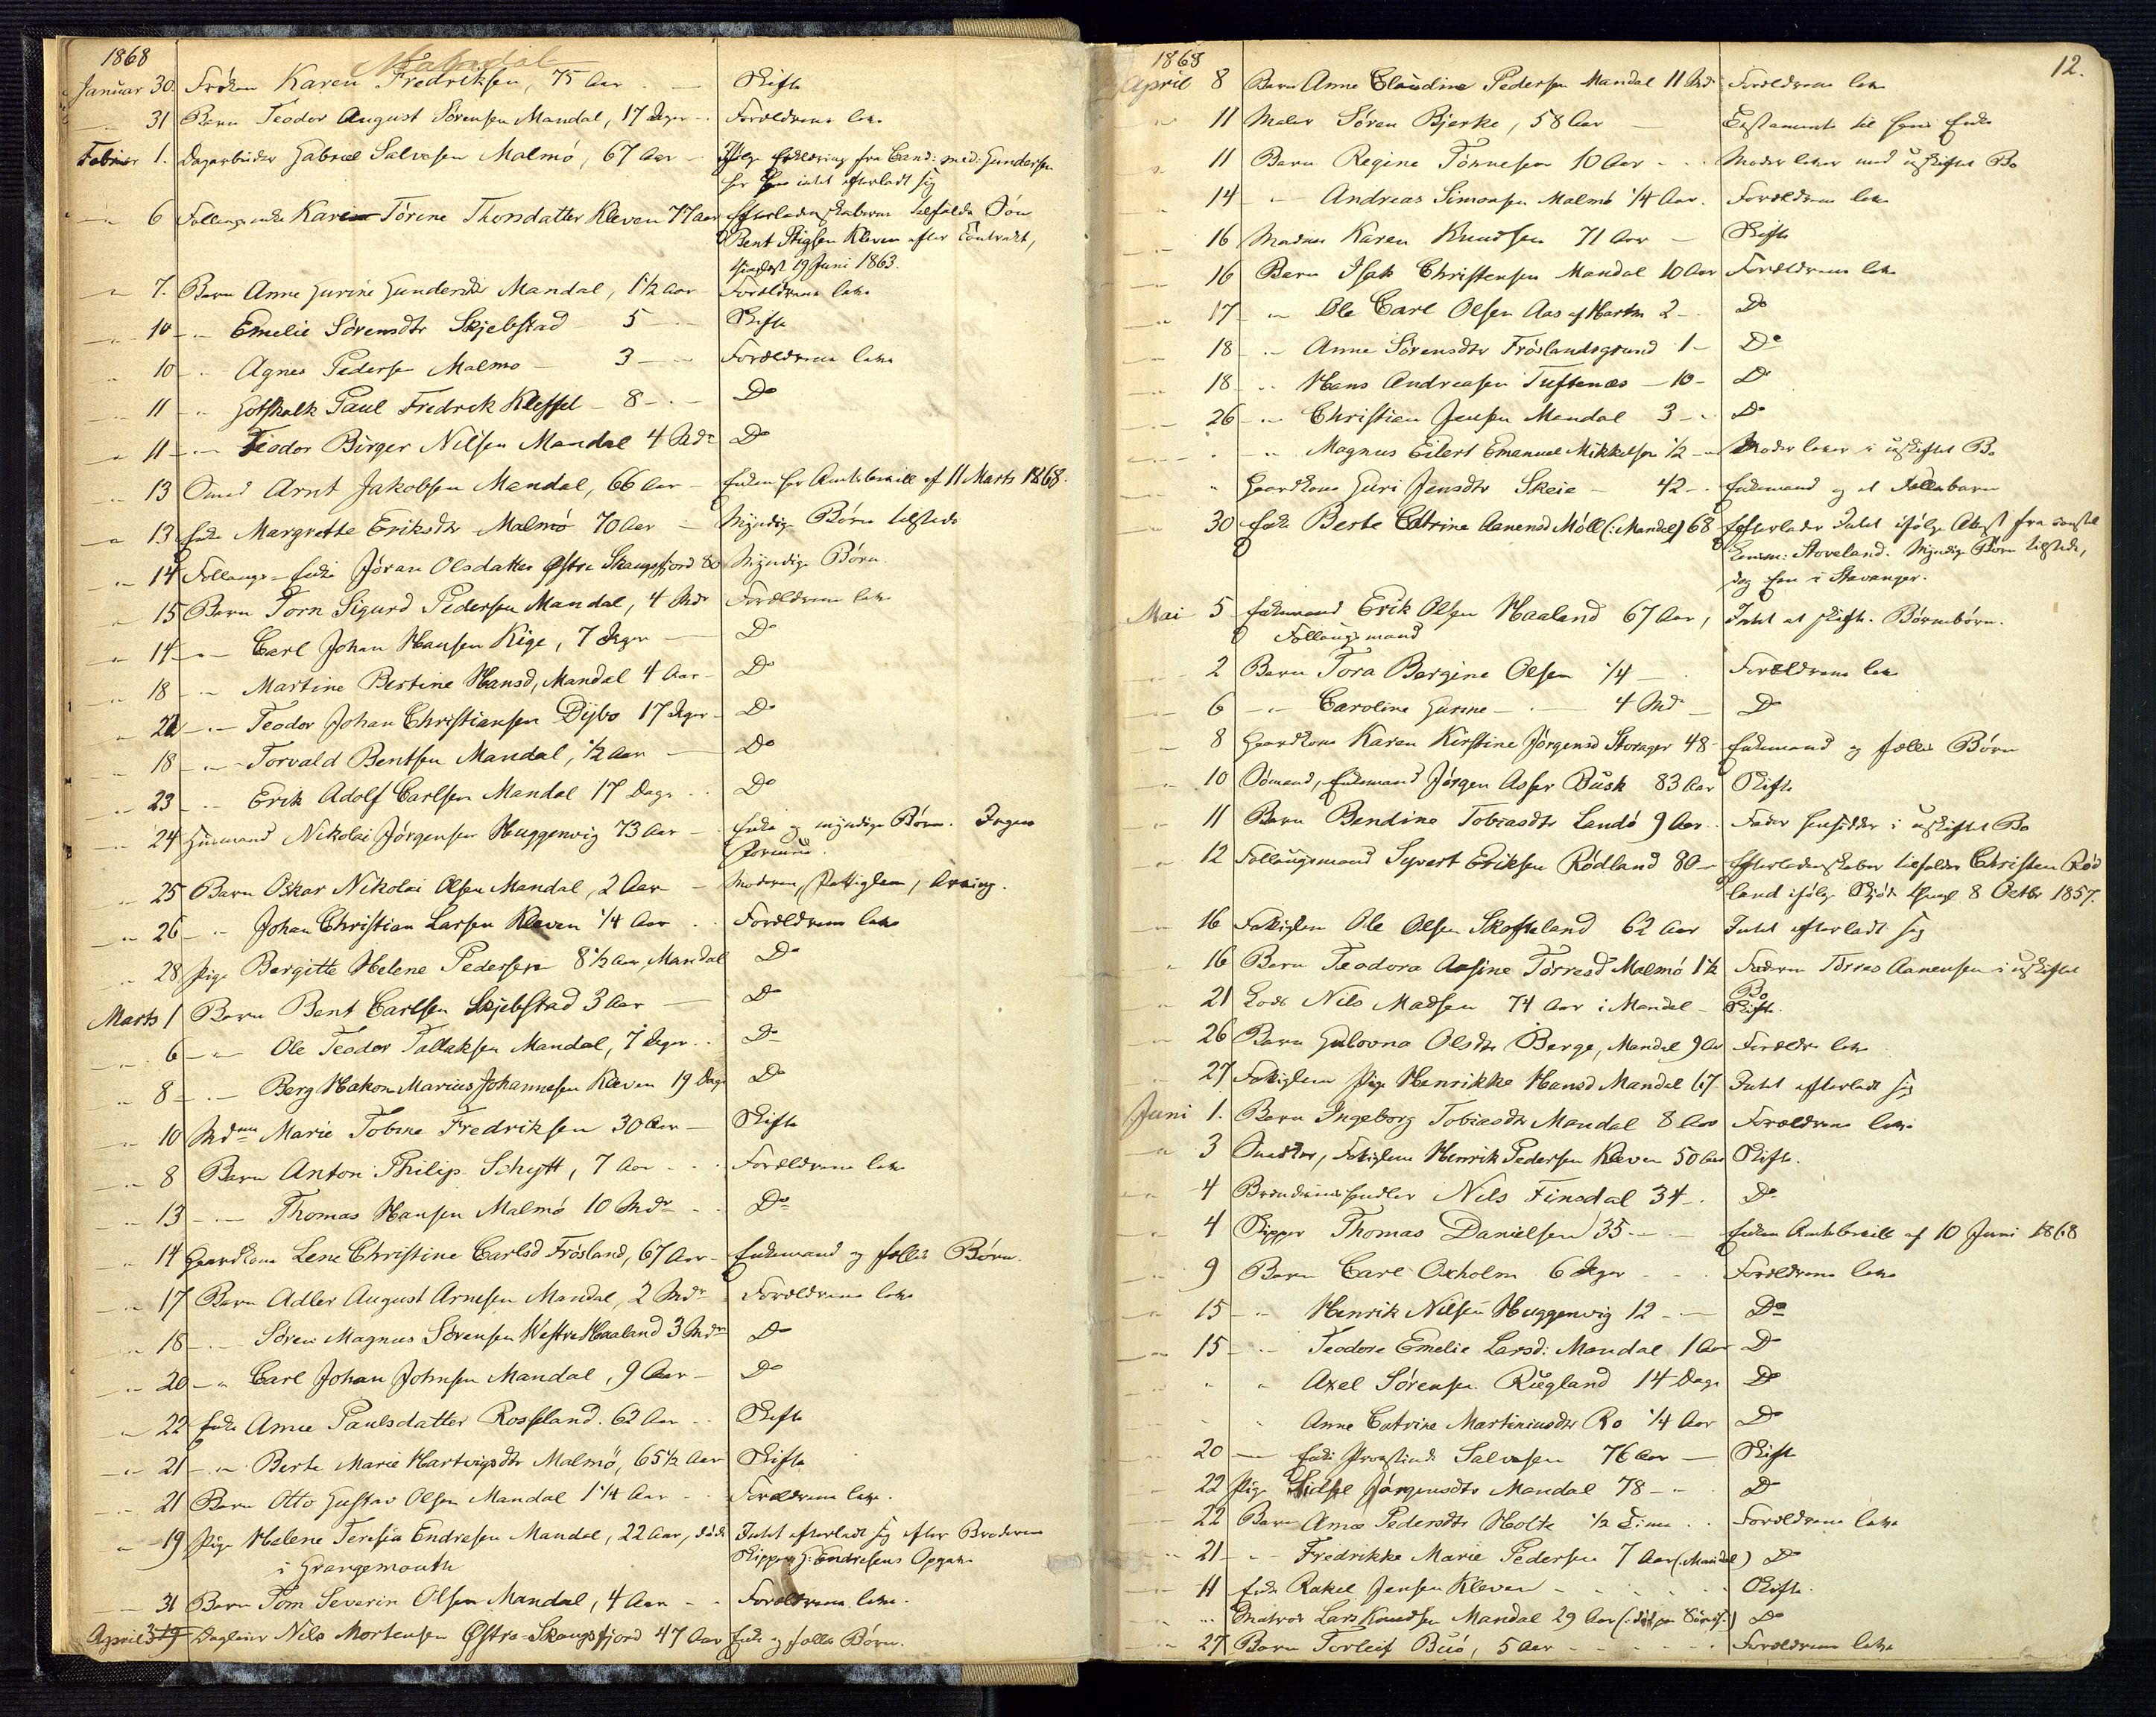 1868
Mandal
Januar 30. Frøken Karen Fredriksen, 75 Aar - Skifte
31 Barn Teodor August Sørensen Mandal, 17 Dager - Forældrene leve
Februar 1. Dagarbeider Gabriel Salvesen Malmø, 67 Aar - Ifølge Erklæring fra Cand: med: Gundersen
har han intet efterladt sig
6 Follaugsenke Karen Tørine Thorsdatter Kleven 77 Aar Efterladenskaberne tilfalde Søn
Bent Stigsen Kleven efter Contrakt,
thinglæst 19 Juni 1863.
7. Barn Anne Gurine Gundersdtr Mandal, 1½ Aar - Forældrene leve
10 - " Emelie Sørensdtr Skjebstad 5 - Skifte
10 - " Agnes Pedersen Malmø - 3 - Forældrene leve
11 - " Gotskalk Paul Fredrek Kleffel - 8 - Do
11 - " Teodor Birger Nilsen Mandal 4 Mdr Do
13 Smed Arnt Jakobsen Mandal, 66 Aar - Enken har Amtsbevill. af 11 Marts 1868.
13 Enke Margrethe Eriksdtr Malmø 70 Aar - Myndige Børn tilstede
14 Follaugs-Enke Jøran Olsdatter Østre Skougsfjord 80 Myndige Børn.
15 Barn Torn Sigurd Pedersen Mandal, 4 Mdr Forældrene leve
14 - " Carl Johan Hansen Kige, 7 Dager - Do
18 - " Martine Bertine Hansd, Mandal 4 Aar - Do
22 - " Teodor Johan Christiansen Dybo 17 Dager - Do
18 - " Torvald Bentsen Mandal, ½ Aar - Do
23 - " Erik Adolf Carlsen Mandal 17 Dage - Do
24 Husmand Nikolai Jørgensen Huggenvig 73 Aar - Enke og myndige Børn. Ingen
Formue.
25 Barn Oskar Nikolai Olsen Mandal, 2 Aar - Moderen, Fattiglem, Arving.
26 - " Johan Christian Larsen Kleven ¼ Aar - Forældrene leve
28 Pige Bergitte Helene Pedersen 8½ Aar, Mandal Do
Marts 1 Barn Bent Carlsen Skjebstad 3 Aar - Do
6 - " Ole Teodor Tallaksen Mandal, 7 Dager - Do
8 - " Berg Hakon Marius Johannesen Kleven 19 Dage Do
10 Mdme Marie Tobine Fredriksen 30 Aar - Skifte
8 Barn Anton Philip Schytt, 7 Aar - Forældrene leve
13 - " Thomas Hansen Malmø 10 Mdr - Do
14 Gaardkone Lene Christine Carlsd Frøsland, 67 Aar - Enkemand og fælles Børn.
17 Barn Adler August Arnesen Mandal, 2 Mdr Forældrene leve
18 - " Søren Magnus Sørensen Westre Haaland 3 Mdr Do
20 - " Carl Johan Johnsen Mandal, 9 Aar - Do
22 Enke Anne Paulsdatter Rosseland. 62 Aar - Skifte
21 - " Berte Marie Hartvigsdtr Malmø, 65½ Aar Skifte
21 Barn Otto Gustav Olsen Mandal 1¼ Aar - Forældrene leve.
19 Pige Helene Teresia Endresen Mandal, 22 Aar, død Intet efterladt sig efter Broderen
i Grangemouth Skipper G: Endresens Opgave
31 Barn Tom Severin Olsen Mandal, 4 Aar - Forældrene leve.
April 3 Dagleier Nils Mortensen Østre-Skougsfjord 47 Aar Enke og fælles Børn.
1868 12.
April 8 Barn Anne Claudine Pedersen Mandal 11 Mdr Forældrene leve
11 Maler Søren Bjerke, 58 Aar - Testamente til hans Enke
11 Barn Regine Tønnesen 10 Aar - Moder lever med uskiftet Bo
14 - " Andreas Simonsen Malmø ¼ Aar. Forældrene leve
16 Madme Karen Knudsen 71 Aar - Skifte
16 Barn Isak Christensen Mandal 10 Aar Forældrene leve
17 - " Ole Carl Olsen Aas af Hartm 2 - Do
18 - " Anne Sørensdtr Frøslandsgrund 1 - Do
18 - " Hans Andreasen Tuftenæs - 10 - Do
26 - " Christian Jensen Mandal 3 - Do
" Magnus Eilert Emanuel Mikkelsen ½ - Moder lever i uskiftet Bo
" Gaardkone Guri Jensdtr Skeie - 42 - Enkemand og et Fællesbarn
30 Enke Berte Catrine Aanensd Møll (: Mandal) 68 Efterlader Intet ifølge Attest fra constit
Lensm: Stoveland. Myndige Børn tilstede,
dog Een i Stavanger.
Mai 5 Enkemand Erik Olsen Haaland 67 Aar, Intet at skifte. Børnebørn.
Follaugsmand
2 Barn Tora Bergine Olsen ¼ - Forældrene leve
6 - " Caroline Gurine - " - 4 Mdr - Do
8 Gaardkone Karen Kirstine Jørgensd Storager 48 - Enkemand og fælles Børn
10 Sømand, Enkemand Jørgen Asser Busk 83 Aar Skifte
11 Barn Bendine Tobiasdtr Landø 9 Aar. Fader hensidder i uskiftet Bo
12 Follaugsmand Syvert Eriksen Rødland 80 - Efterladenskaber tilfalder Christen Rød
land ifølge Skjøde thingl. 8 Octbr 1857.
16 Fattiglem Ole Olsen Skofteland 62 Aar Intet efterladt sig
16 Barn Teodora Aasine Tørresd Malmø 1½ Faderen Tørres Aanensen i uskiftet
Bo
21 Lods Nils Madsen 74 Aar i Mandal - Skifte.
26 Barn Gulovna Olsdtr Berge, Mandal 9 Aar Forældre leve
27 Fattiglem Pige Henrikke Hansd Mandal 67 Intet efterladt sig
Juni 1. Barn Ingeborg Tobiasdtr Mandal 8 Aar Forældrene leve
3 Snedker, Fattiglem Henrik Pedersen Kleven 50 Aar Skifte.
4 Brændeviinshandler Nils Finsdal 34 - Do
4 Skipper Thomas Danielsen 35 - Enken Amtsbevill af 10 Juni 1868
9 Barn Carl Oxholm 6 Dager - Forældrene leve
15 - " Henrik Nilsen Huggenvig 12 - " - Do
15 - " Teodore Emelie Larsd: Mandal 1 Aar Do
" " Axel Sørensen Rugland 14 Dage Do
" " Anne Catrine Martiniusdtr Ro ¼ Aar Do
20 - Enke Provstinde Salvesen 76 Aar - Skifte
22 Pige Sidsel Jørgensdtr Mandal 78 - " Do
22 Barn Anne Pedersdtr Holte ½ Time - Forældrene leve
21 - " Fredrikke Marie Pedersen 7 Aar (: Mandal) Do
11 Enke Rakel Jensen Kleven - Skifte.
" Matros Lars Knudsen Mandal 29 Aar (: død paa Søreis:) Do
27 Barn Torleif Buø, 5 Aar - Forældrene leve